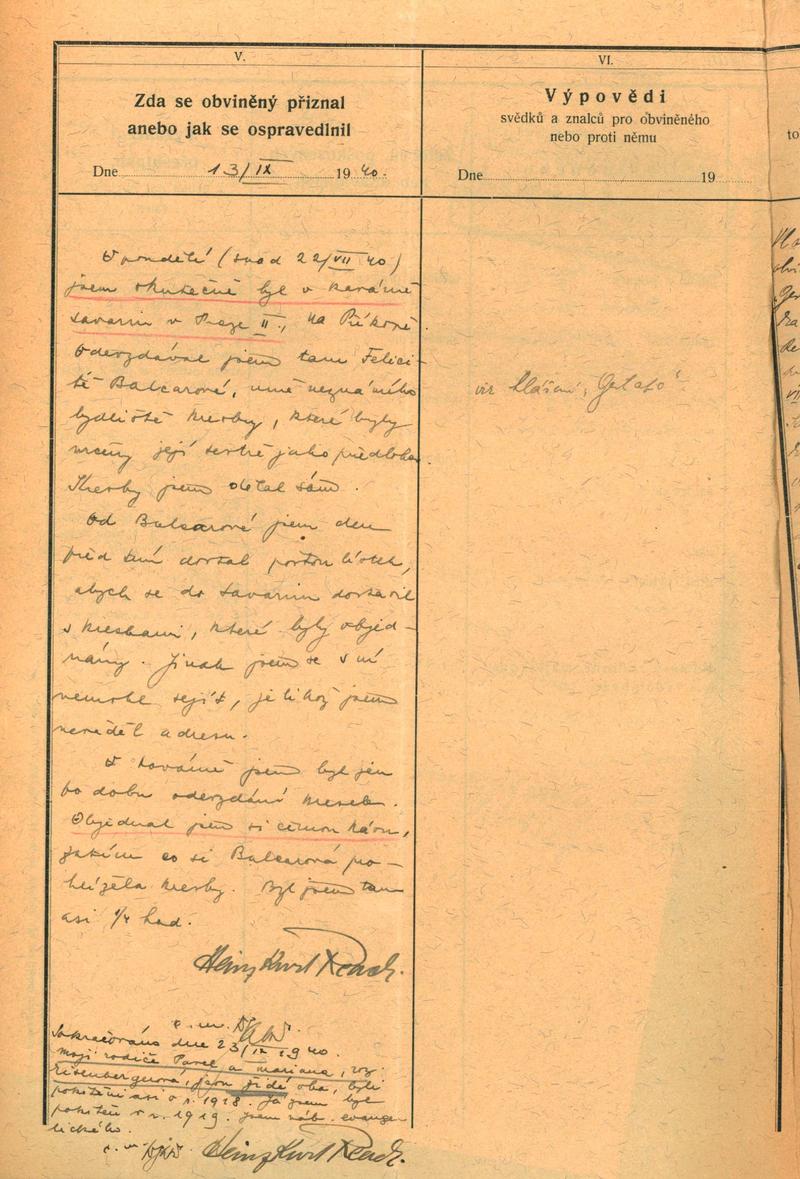 V.
Zda se obviněný přiznal
anebo jak se ospravedlnil
Dne 13/IX 1940.
VI.
Výpovědi
svědků a znalců pro obviněného
nebo proti němu
Dne 19
to
V pondělí (snad 22/VII 40)
jsem skutečně byl v kavárně
Savarin v Praze II., Na Příkopě
Odevzdával jsem tam Felici-
tě Balcarové, mně neznámého
bydliště kresby, které byly
určeny její sestře jako předloha.
Kresby jsem dělal sám.
Od Balcarové jsem den
před tím dostal poštou lístek,
abych se do Savarinu dostavil
s kresbami, které byly objed-
nány. Jinak jsem se s ní
nemohl sejít, jelikož jsem
nevěděl adresu.
V kavárně jsem byl jen
po dobu odevzdání kreseb.
Objednal jsem si černou kávu,
zatím co si Balcarová pro-
hlížela kresby. Byl jsem tam
asi 1/4 hod.
Heinz Kurt
viz hlášení,
Pokračováno dne 23/IX 1940.
Moji rodiče Pavel a Mariana, roz.
Eisenbergerová, jsou židé oba, byli
pokřtěni asi v r. 1918. Já jsem byl
pokřtěn v r. 1919. Jsem náb. evange-
lického.
Heinz Kurt